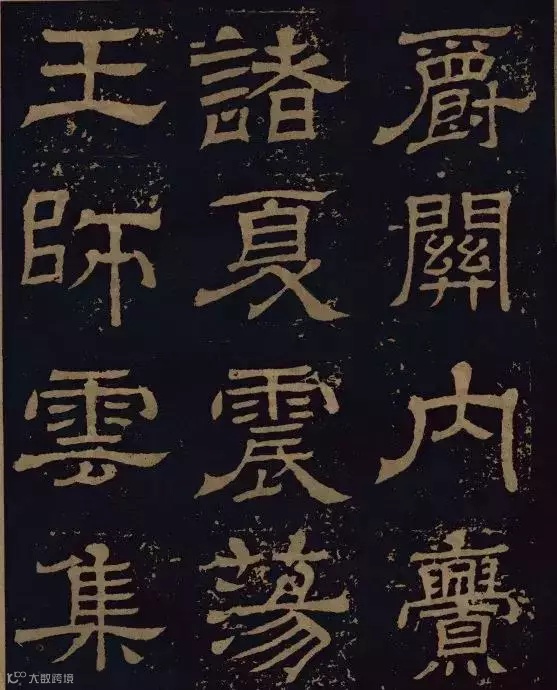 爵關內釁
諸夏震蕩
王師雲集
大数跨境